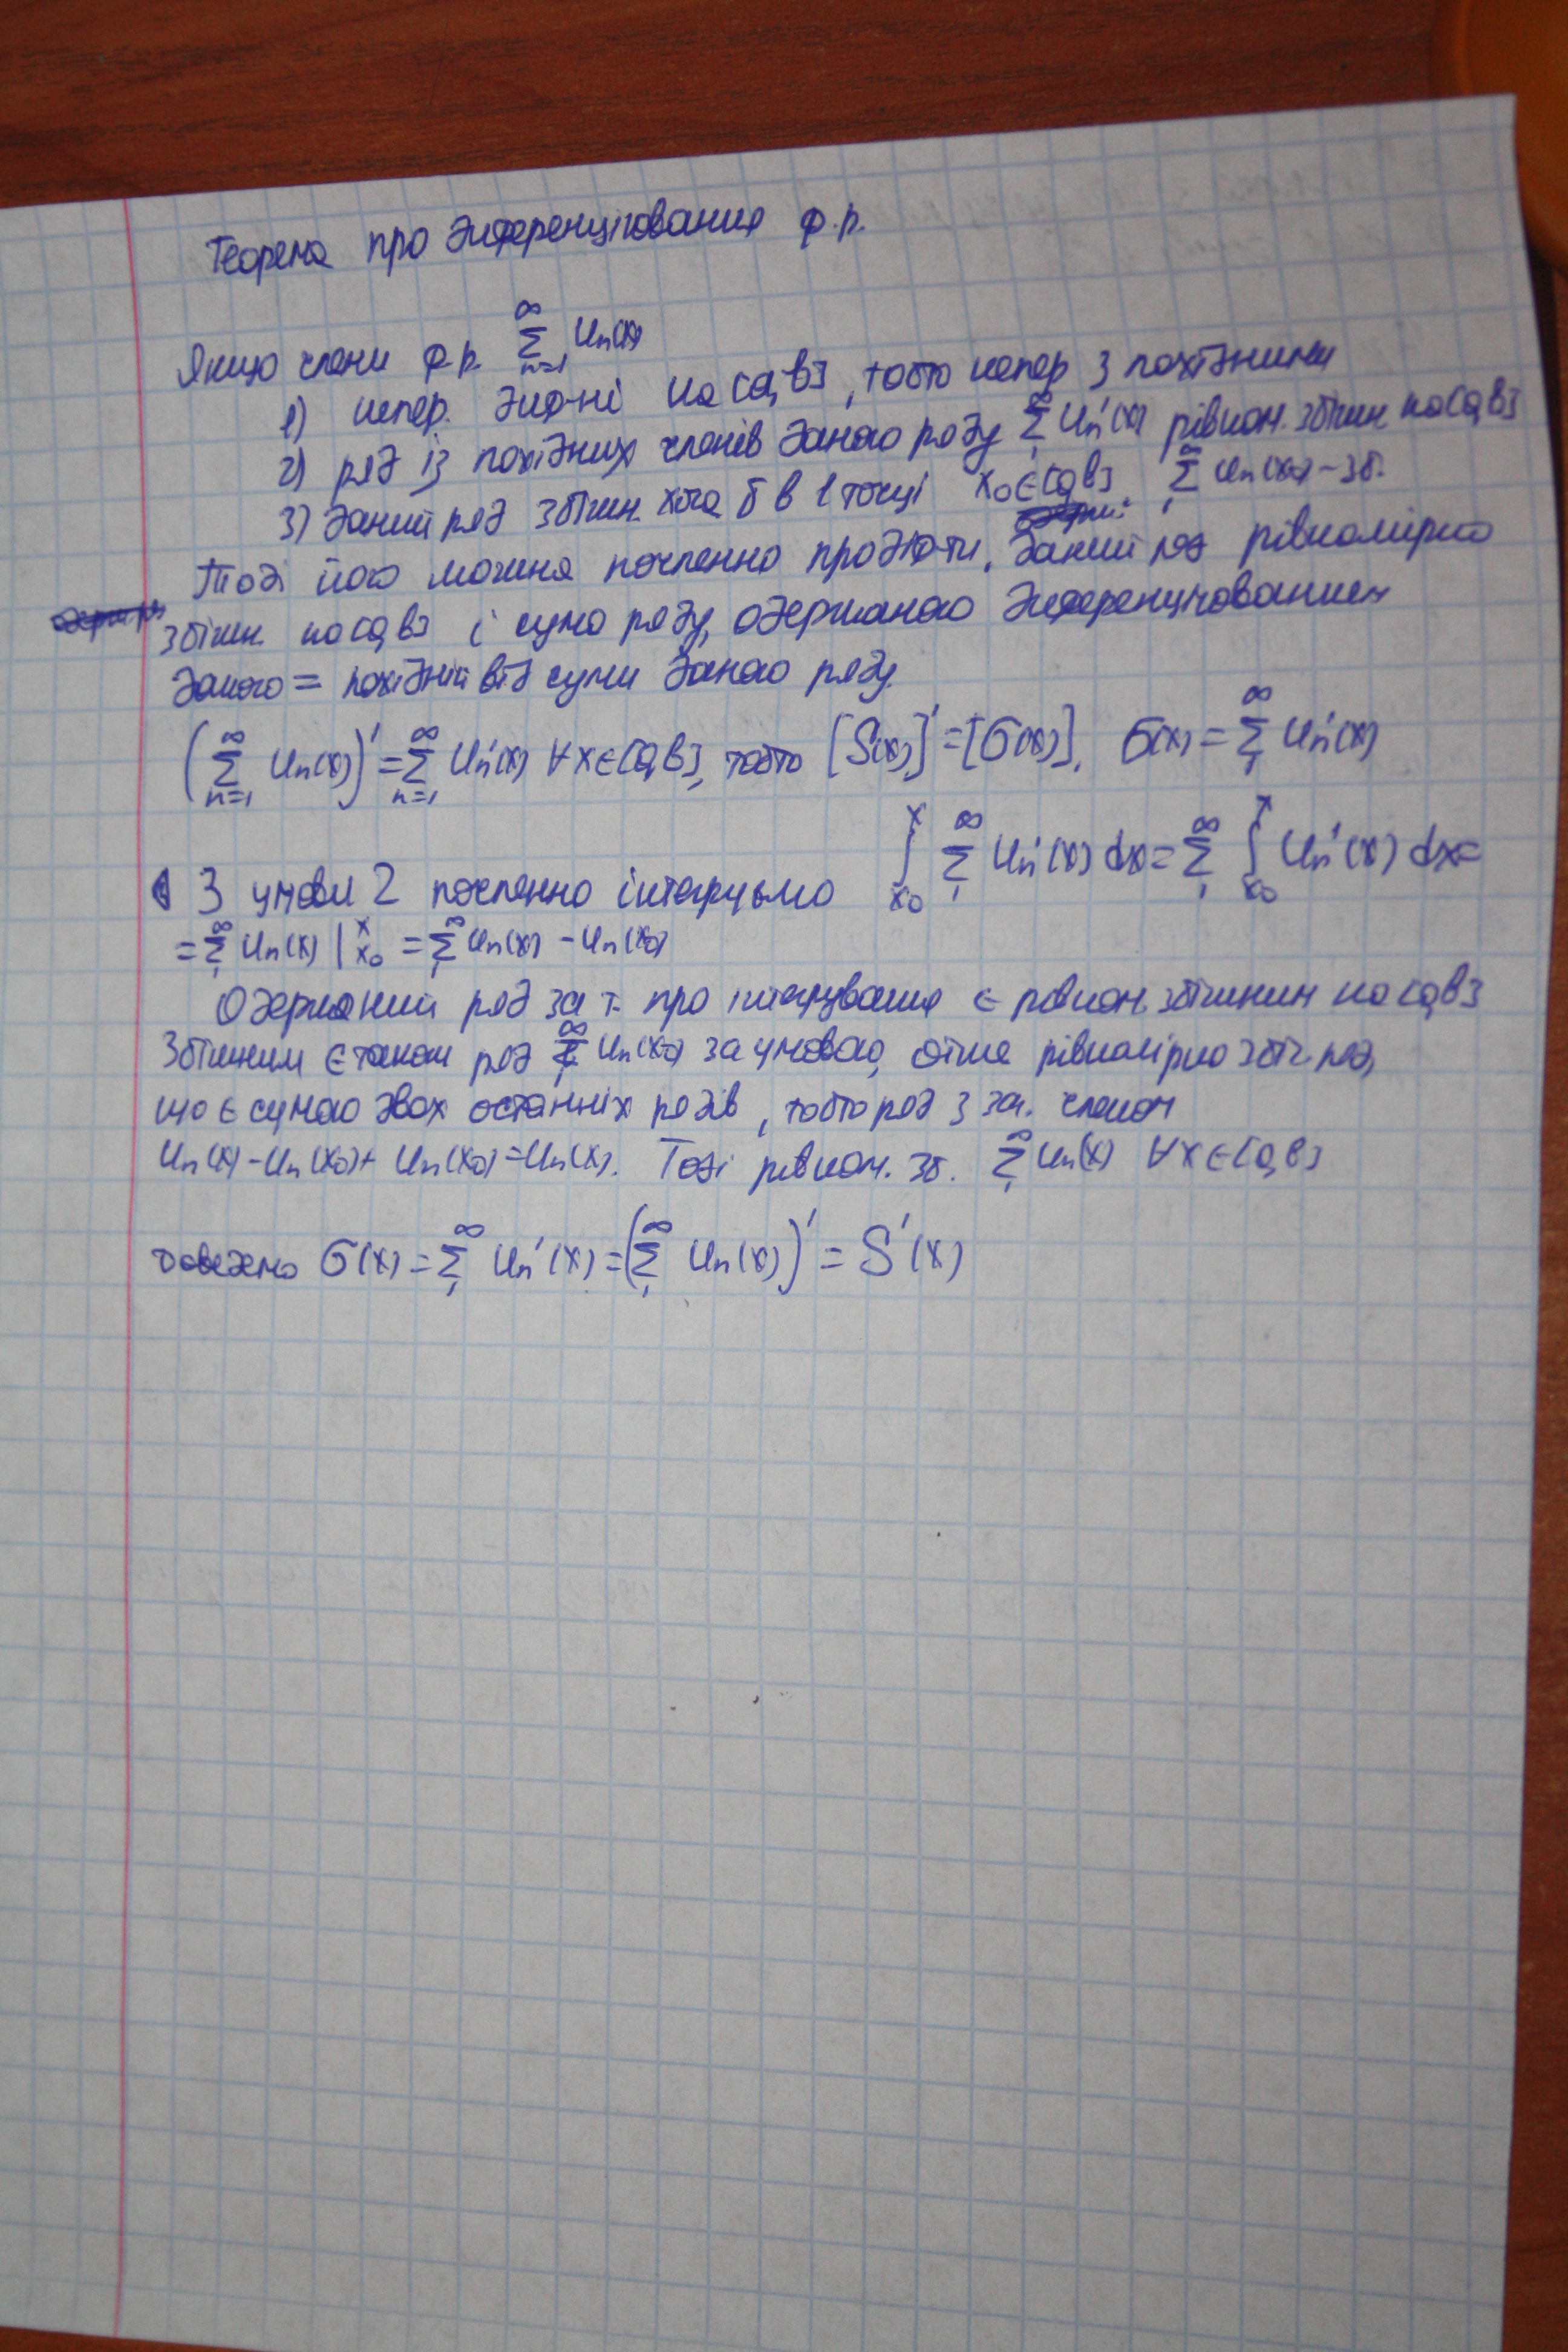 Теорема про диференціювання ф.р.
Якщо члени ф.р. ∑_{n=1}^{∞} Un(x)
1) непер. диф-ні на [a,b], тобто непер з похідними
2) ряд із похідних членів даного ряду ∑_{1}^{∞} Un'(x) рівном. збіжн. на [a,b]
3) даний ряд збіжн. хоча б в 1 точці x₀∈[a,b]. ∑_{1}^{∞} Un(x₀) – зб.
Тоді його можна почленно продиф-ти, даний ряд рівномірно
збіжн. на [a,b] і сума ряду, одержаного диференціюванням
даного = похідній від суми даного ряду.
(∑_{n=1}^{∞} Un(x))' = ∑_{n=1}^{∞} Un'(x) ∀x∈[a,b], тобто [S(x)]' = [σ(x)], σ(x) = ∑_{1}^{∞} Un'(x)
З умови 2 почленно інтегруємо ∫_{x₀}^{x} ∑_{1}^{∞} Un'(x) dx = ∑_{1}^{∞} ∫_{x₀}^{x} Un'(x) dx =
= ∑_{1}^{∞} Un(x) |_{x₀}^{x} = ∑_{1}^{∞} Un(x) – Un(x₀)
Одержаний ряд за т. про інтегрування є рівном. збіжним на [a,b]
Збіжним є також ряд ∑_{1}^{∞} Un(x₀) за умовою, отже рівномірно збіг. ряд,
що є сумою двох останніх рядів, тобто ряд з заг. членом
Un(x) – Un(x₀) + Un(x₀) = Un(x). Тоді рівном. зб. ∑_{1}^{∞} Un(x) ∀x∈[a,b]
доведемо σ(x) = ∑_{1}^{∞} Un'(x) = (∑_{1}^{∞} Un(x))' = S'(x)